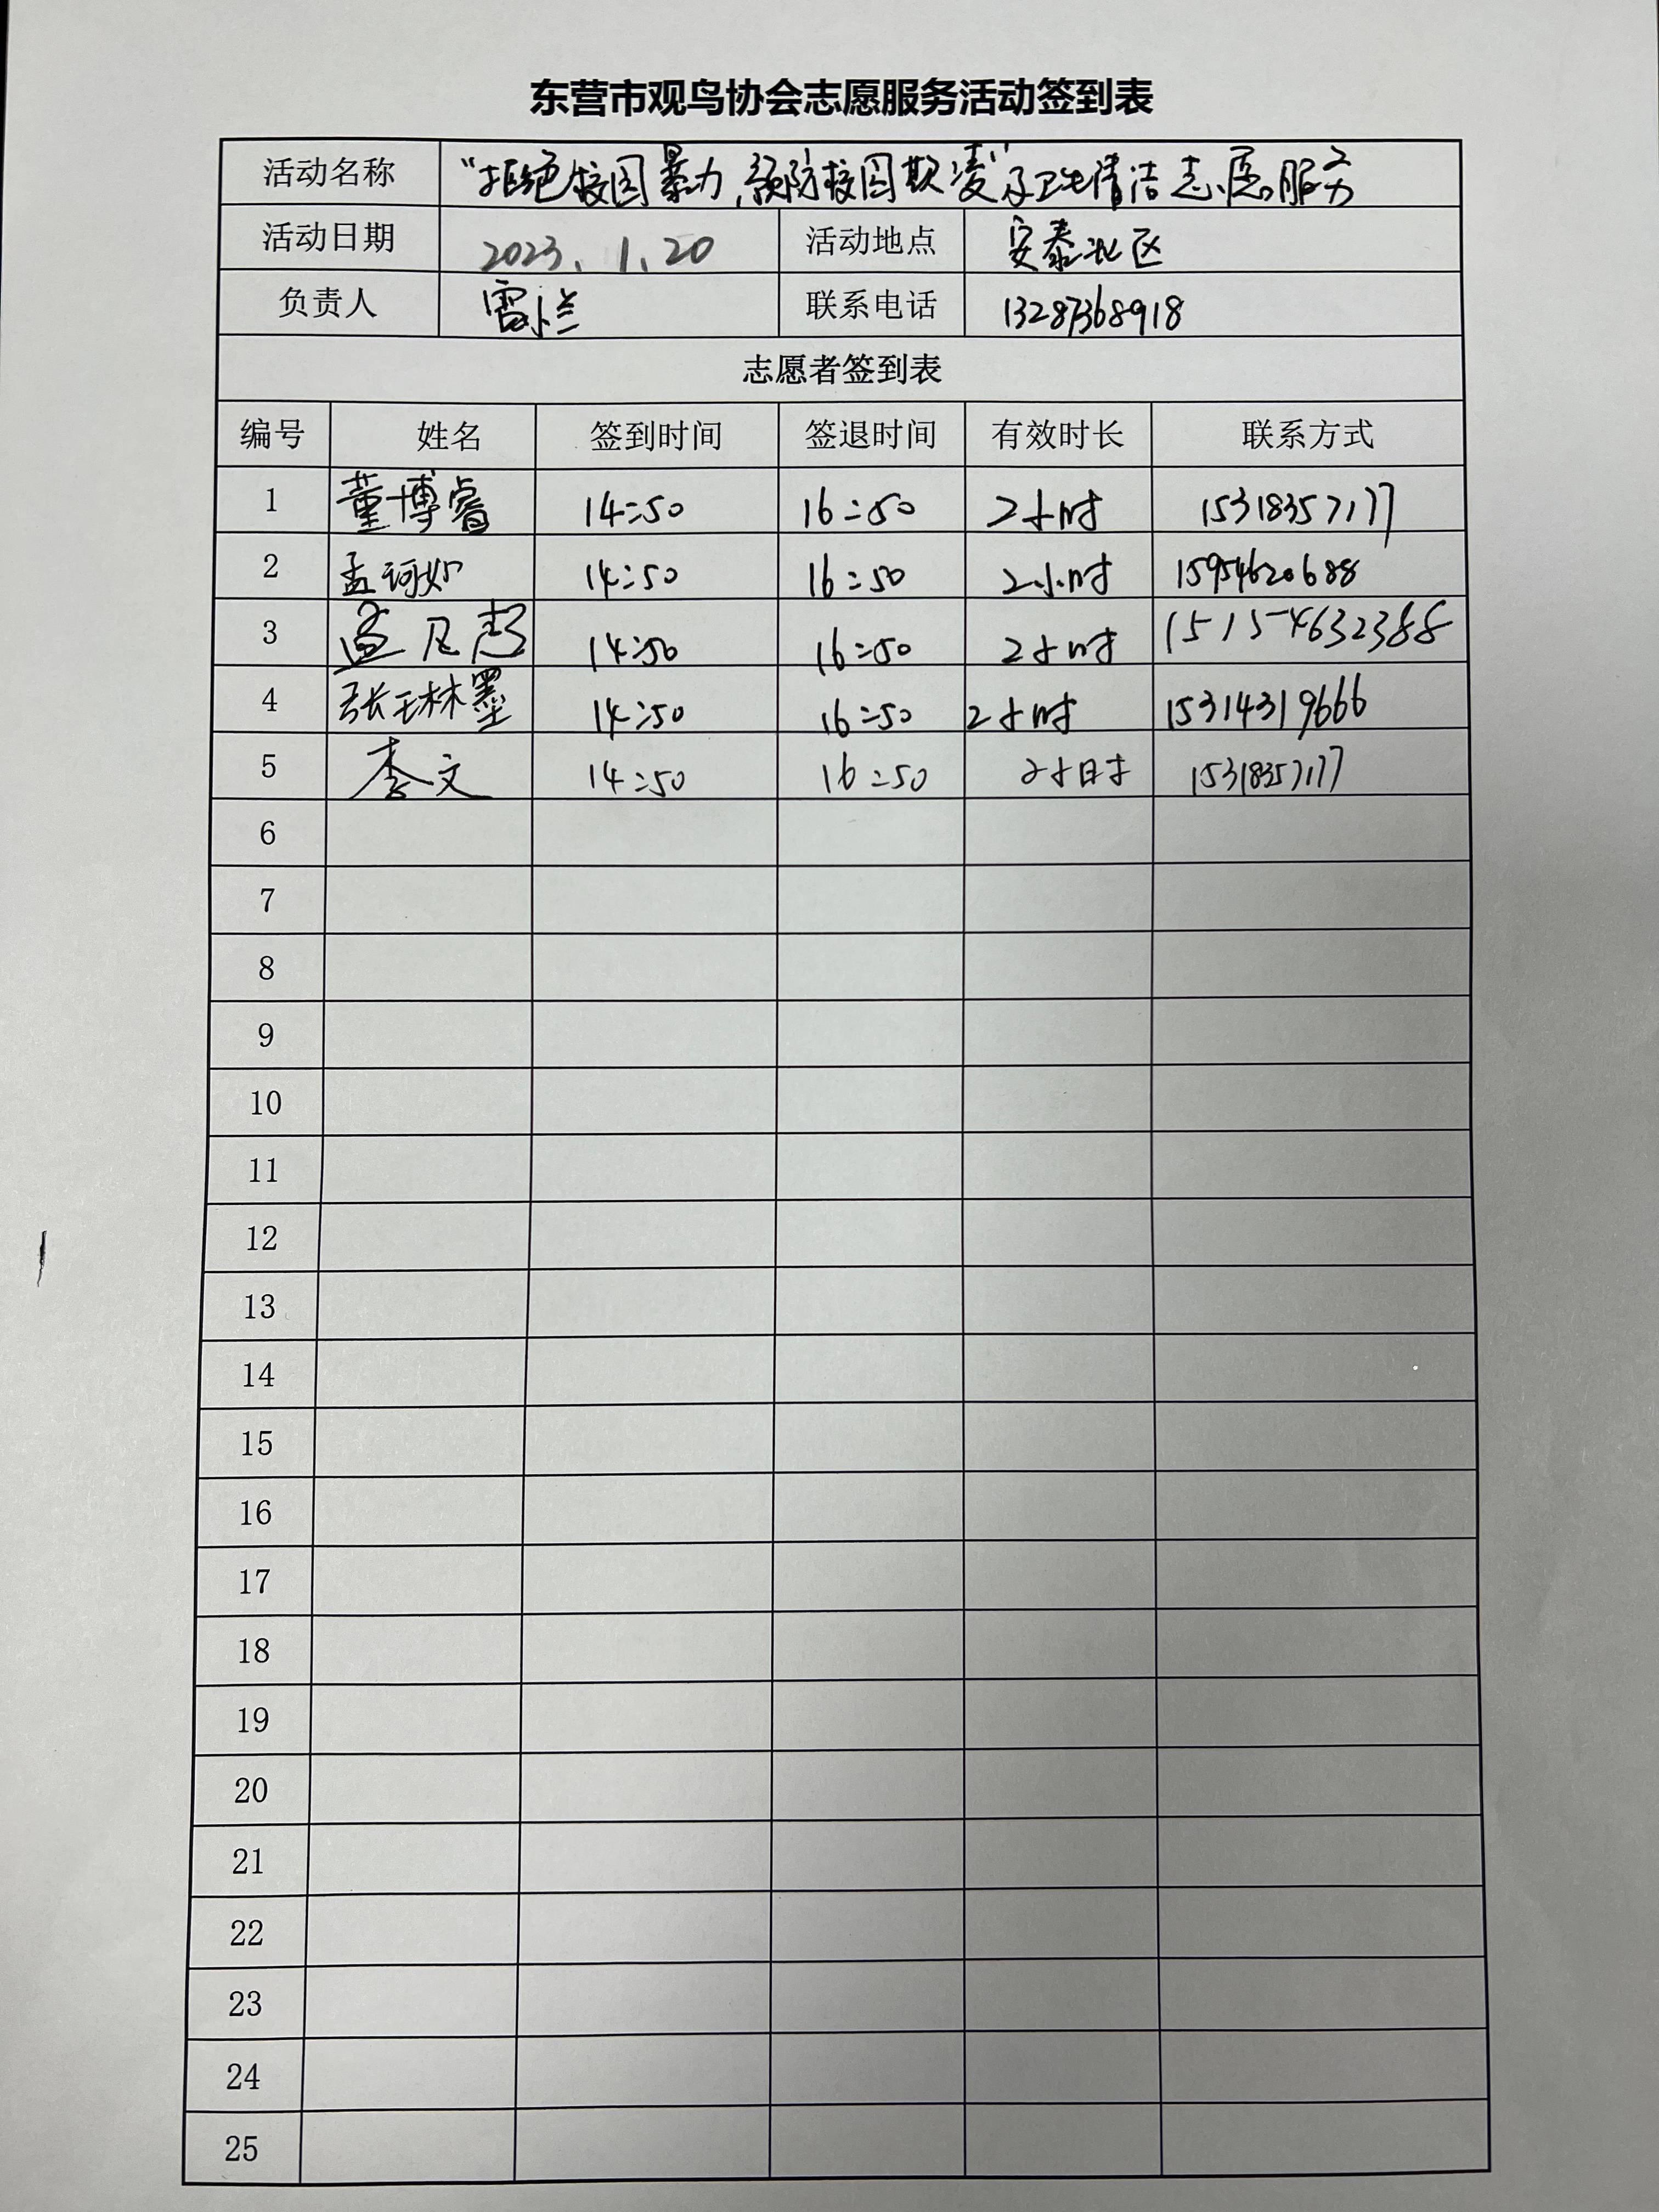 东营市观鸟协会志愿服务活动签到表
活动名称 “拒绝校园暴力,预防校园欺凌”及卫生清洁志愿服务
活动日期 2023、1、20 活动地点 安泰北区
负责人 雷兰 联系电话 13287368918
志愿者签到表
编号 姓名 签到时间 签退时间 有效时长 联系方式
1 董博睿 14:50 16:50 2小时 15318357177
2 孟珂如 14:50 16:50 2小时 15954620688
3 孟凡超 14:50 16:50 2小时 15154632388
4 张珷墨 14:50 16:50 2小时 15314319666
5 李文 14:50 16:50 2小时 15318357177
6
7
8
9
10
11
12
13
14
15
16
17
18
19
20
21
22
23
24
25